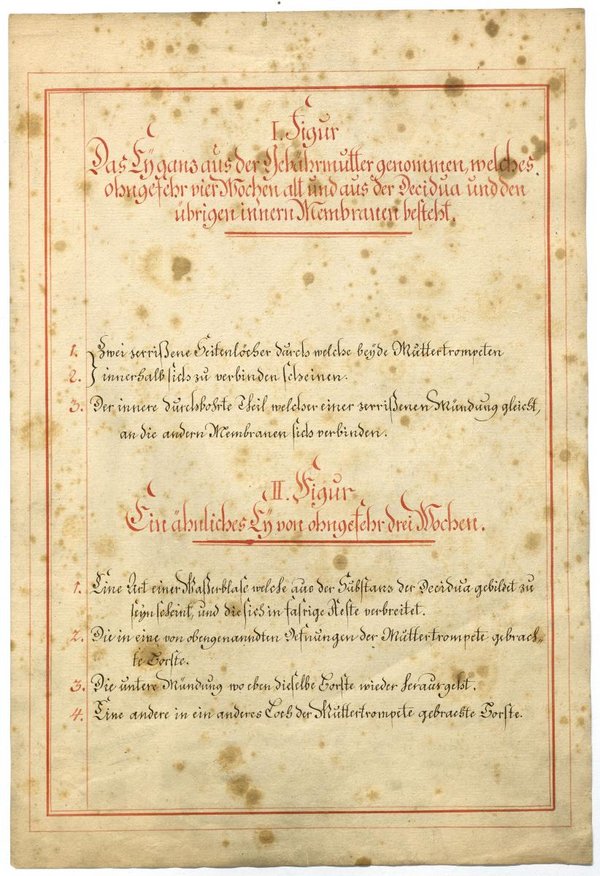 I. Figur
Das Ey ganz aus der Gebährmutter genommen, welches
ohngefehr vier Wochen alt und aus der Decidua und den
übrigen innern Membranen besteht.
1. Zwei zerrißene Seitenlöcher durch welche beyde Muttertrompeten
2. innerhalb sich zu verbinden scheinen.
3. Der innere durchbohrte Theil welcher einer zerrißenen Mündung gleicht,
an die andern Membranen sich verbinden.
II. Figur
Ein ähnliches Ey von ohngefehr drei Wochen.
1. Eine Art einer Waßerblase welche aus der Substans der Decidua gebildet zu
seyn scheint, und die sich in fasrige Aeste verbreitet.
2. Die in eine von obengenanndten Oefnungen der Muttertrompete gebrach-
te Borste.
3. Die untere Mündung wo eben dieselbe Borste wieder herausgeht.
4. Eine andere in ein anderes Loch der Muttertrompete gebrachte Borste.